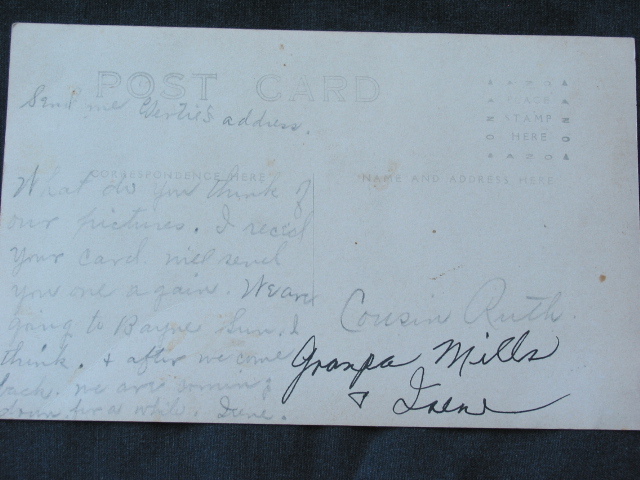 POST CARD
Send me Gertie's address.
AZO
PLACE
STAMP
HERE
AZO
CORRESPONDENCE HERE
NAME AND ADDRESS HERE
What do you think of
our pictures. I rec'd
your card will send
you one again. We are
going to Bayne Sun. I
think. & after we come
back. we are coming
down for a while. Irene.
Cousin Ruth.
Granpa Mills
& Irene